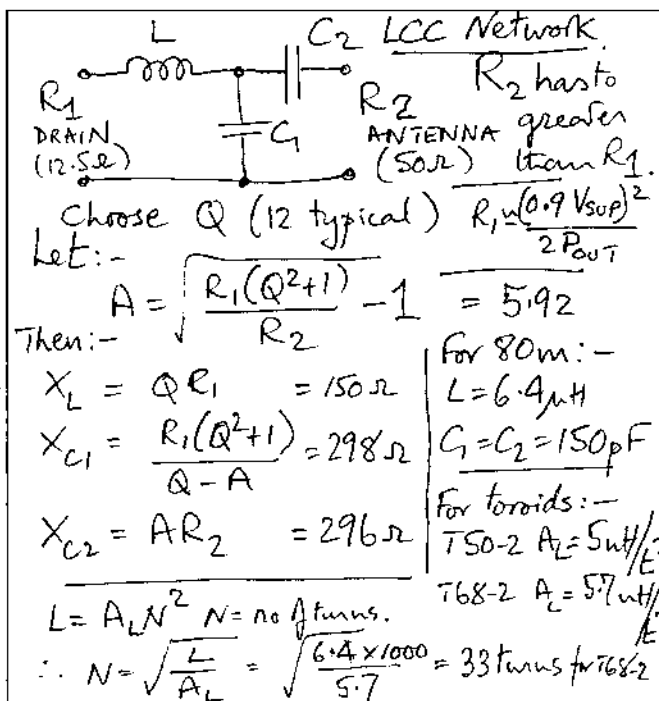 L C2 LCC Network
R1 R2 R2 has to
DRAIN C1 ANTENNA greater
(12.5Ω) (50Ω) than R1.
Choose Q (12 typical) R1 ≈ (0.9 VSUP)² / 2 POUT
Let:-
A = √(R1(Q²+1) / R2 - 1) = 5.92
Then:-
XL = Q R1 = 150Ω
XC1 = R1(Q²+1) / (Q - A) = 298Ω
XC2 = A R2 = 296Ω
For 80m:-
L = 6.4μH
C1 = C2 = 150pF
For toroids:-
T50-2 AL = 5nH/t²
T68-2 AL = 5.7nH/t²
L = AL N² N = no of turns.
∴ N = √(L / AL) = √(6.4 × 1000 / 5.7) = 33 turns for T68-2